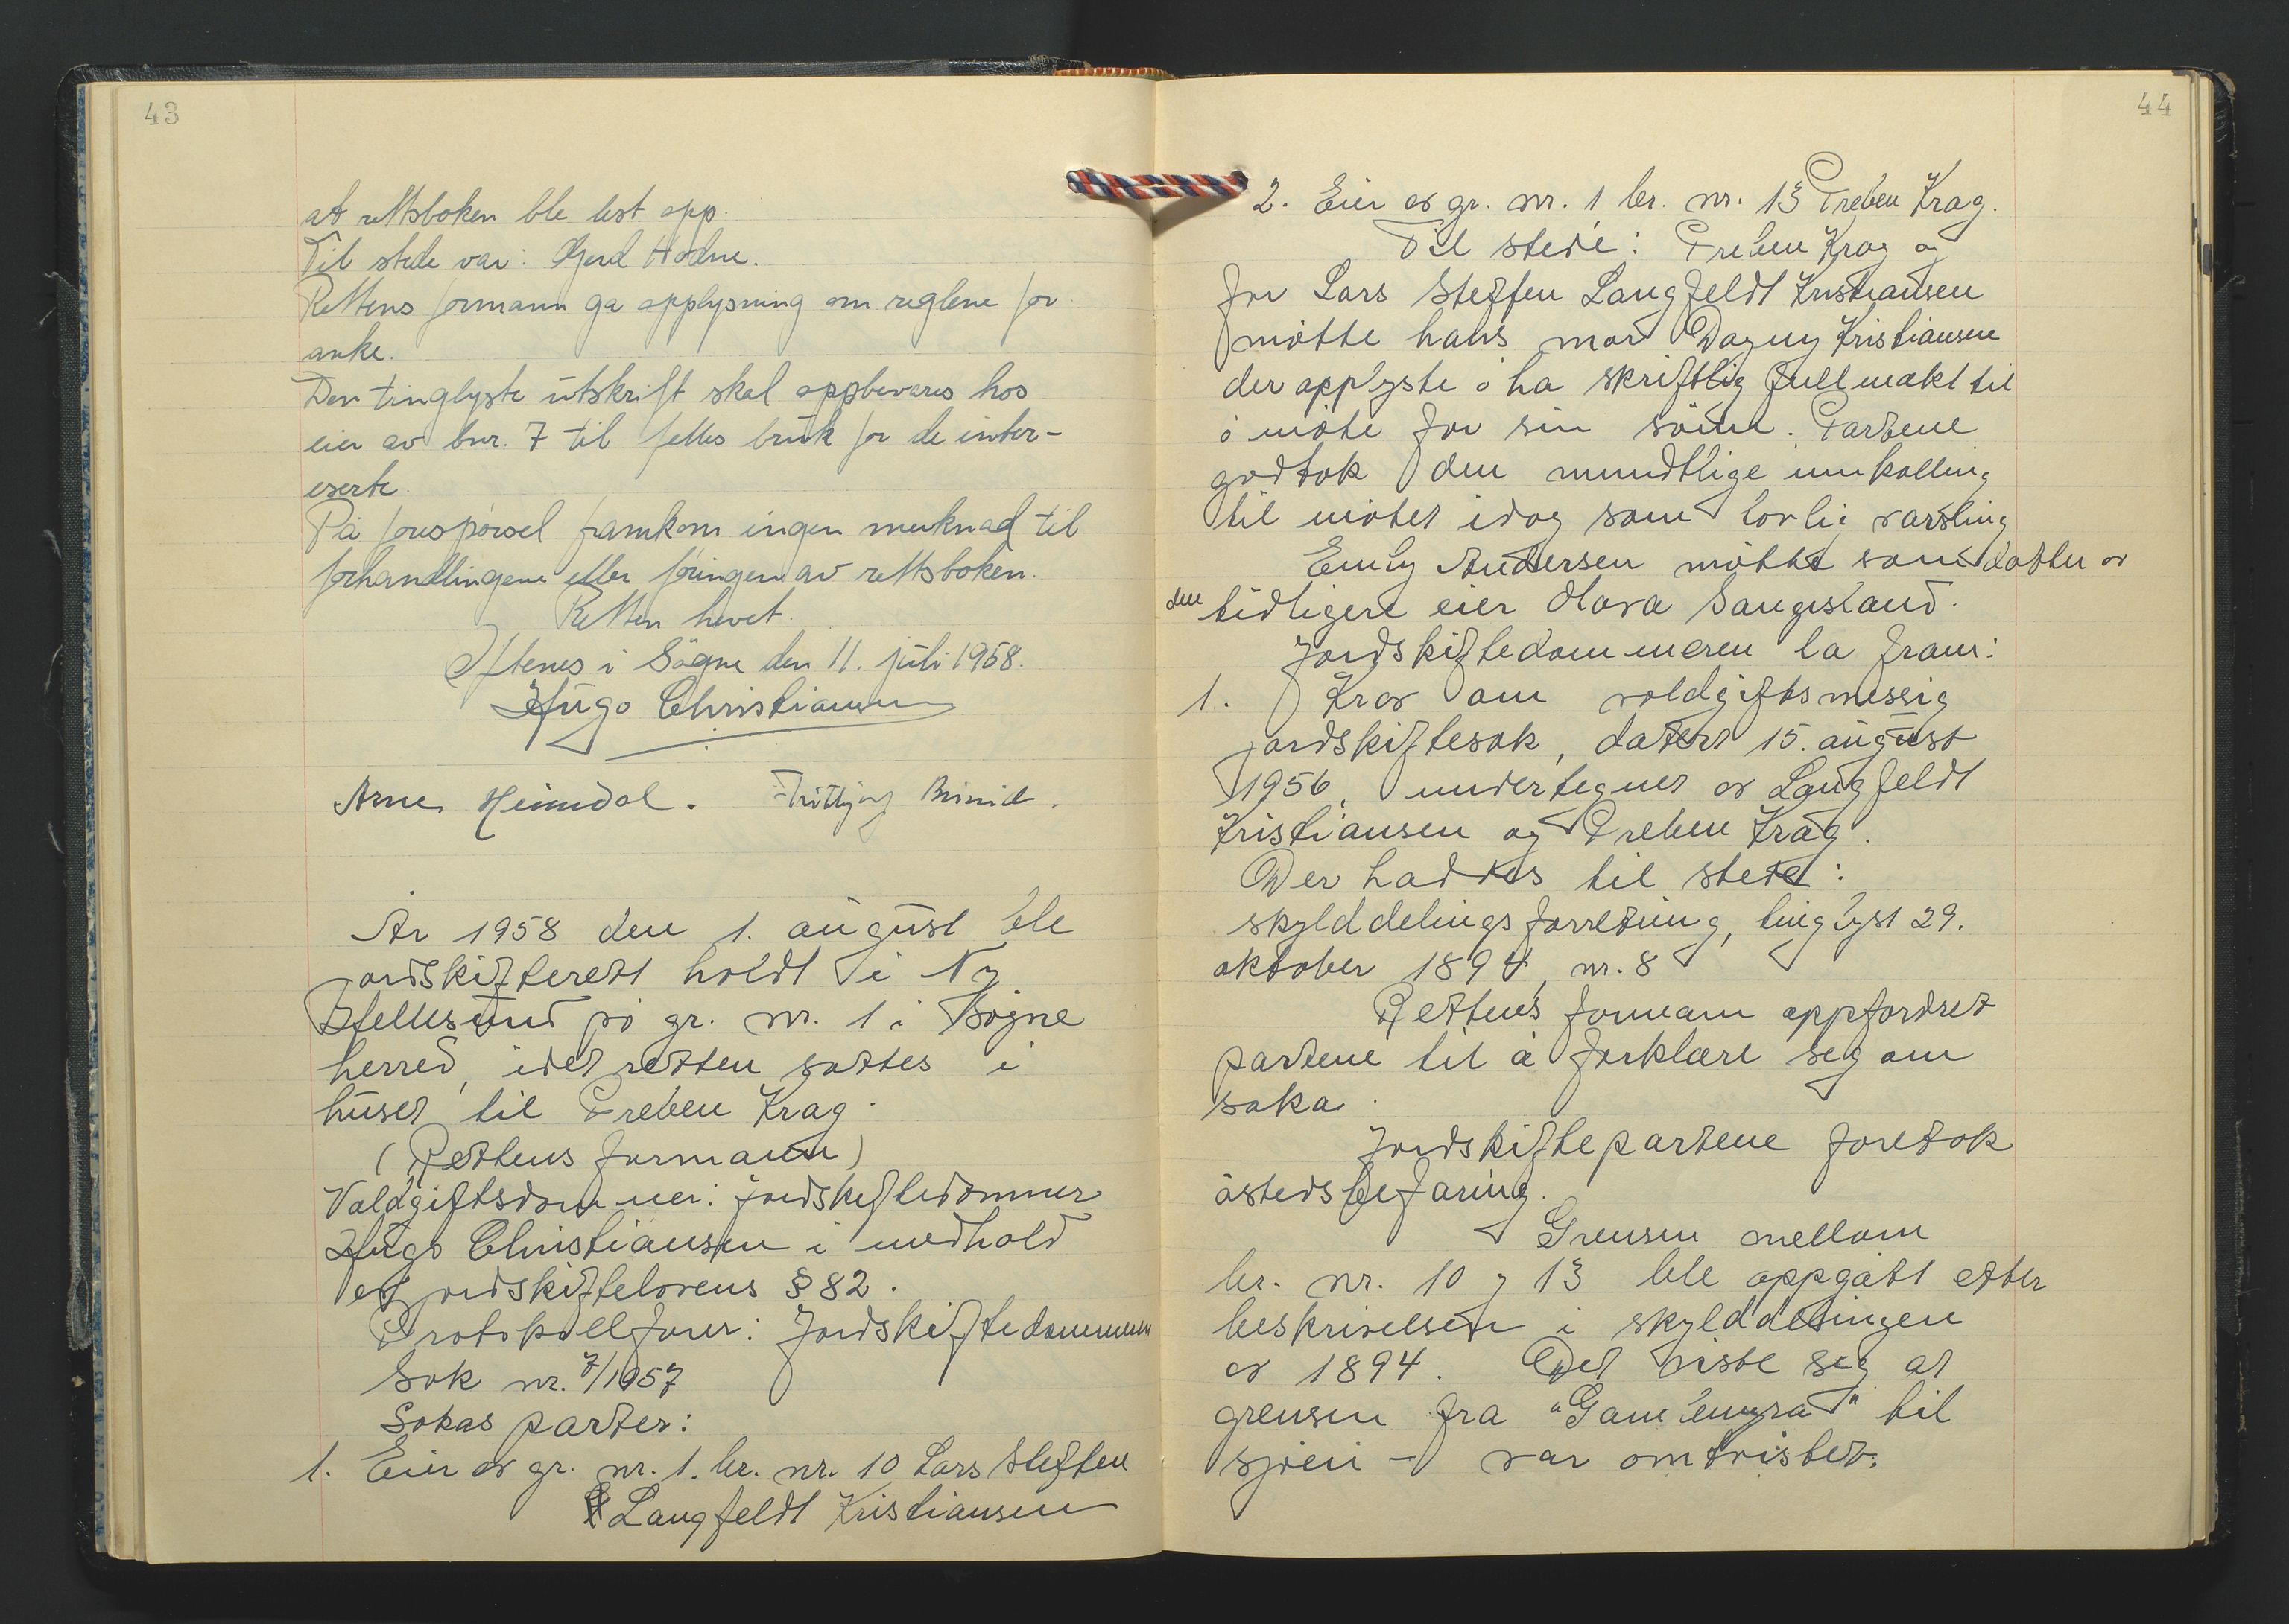 43
at rettsboken ble lest opp.
Til stede var: Gerd Hodne.
Rettens formann ga opplysning om reglene for
anke.
Den tinglyste utskrift skal oppbevares hos
eier av bnr. 7 til felles bruk for de inter-
eserte.
På forespørsel framkom ingen merknad til
forhandlingene eller føringen av rettsboken.
Retten hevet.
Eftenes i Søgne den 11. juli 1958.
Hugo Christiansen
Arne Heimdal. Fritbjof
År 1958 den 1. august ble
jordskifterett holdt i Ny
Hellesund på gr. nr. 1 i Søgne
herred, idet retten sattes i
huset til Preben Krag.
(Rettens formann)
Voldgiftsdommer: jordskiftedommer
Hugo Christiansen i medhold
av jordskiftelovens § 82.
Protokollfører: Jordskiftedommeren
Sak nr. 7/1957
Sakas parter:
1. Eier av gr. nr. 1. br. nr. 10 Lars Steffen
Langfeldt Kristiansen
44
2. Eier av gr. nr. 1 br. nr. 13 Preben Krag.
Til stede: Preben Krag og
for Lars Steffen Langfeldt Kristiansen
møtte hans mor Dagny Kristiansen
der opplyste å ha skriftlig fullmakt til
å møte for sin sønn. Partene
godtok den mundtlige innkalling
til møtet idag som lovlig varsling
Emly Andersen møtte som datter av
den tidligere eier Olava Sangesland.
Jordskiftedommeren la fram:
1. Krav om voldgiftsmessig
jordskiftesak, datert 15. august
1956, undertegnet av Langfeldt
Kristiansen og Preben Krag.
Der haddes til stede:
skylddelingsforretning, tinglyst 29.
oktober 1894, nr. 8
Rettens formann oppfordret
partene til å forklare seg om
saka.
Jordskiftepartene foretok
åstedsbefaring.
Grensen mellom
br. nr. 10 og 13 ble oppgått etter
beskrivelsen i skylddelingen
av 1894. Det viste seg at
grensen fra til
sjøen - var omtvistet.